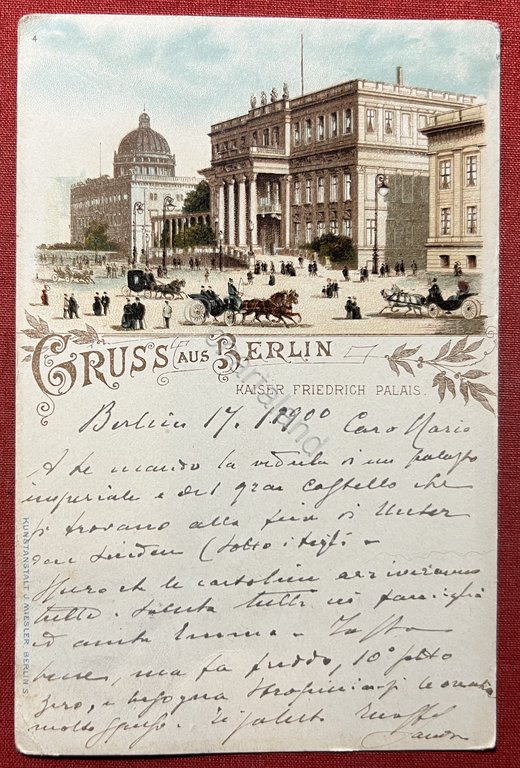 4
GRUSS AUS BERLIN
KAISER FRIEDRICH PALAIS.
Berlin 17.1.1900 Caro Mario
A te mando la veduta di un palazzo
imperiale e del gran castello che
si trovano alla fine di Unter
den Linden (sotto i tigli.
Spero che le cartoline arriveranno
tutte. Saluta tutti in famiglia
ed anche Emma.
bene, ma fa freddo, 10° sotto
zero, e bisogna le
molto spesso. Ti saluto
KUNSTANSTALT J. MIESLER, BERLIN S.